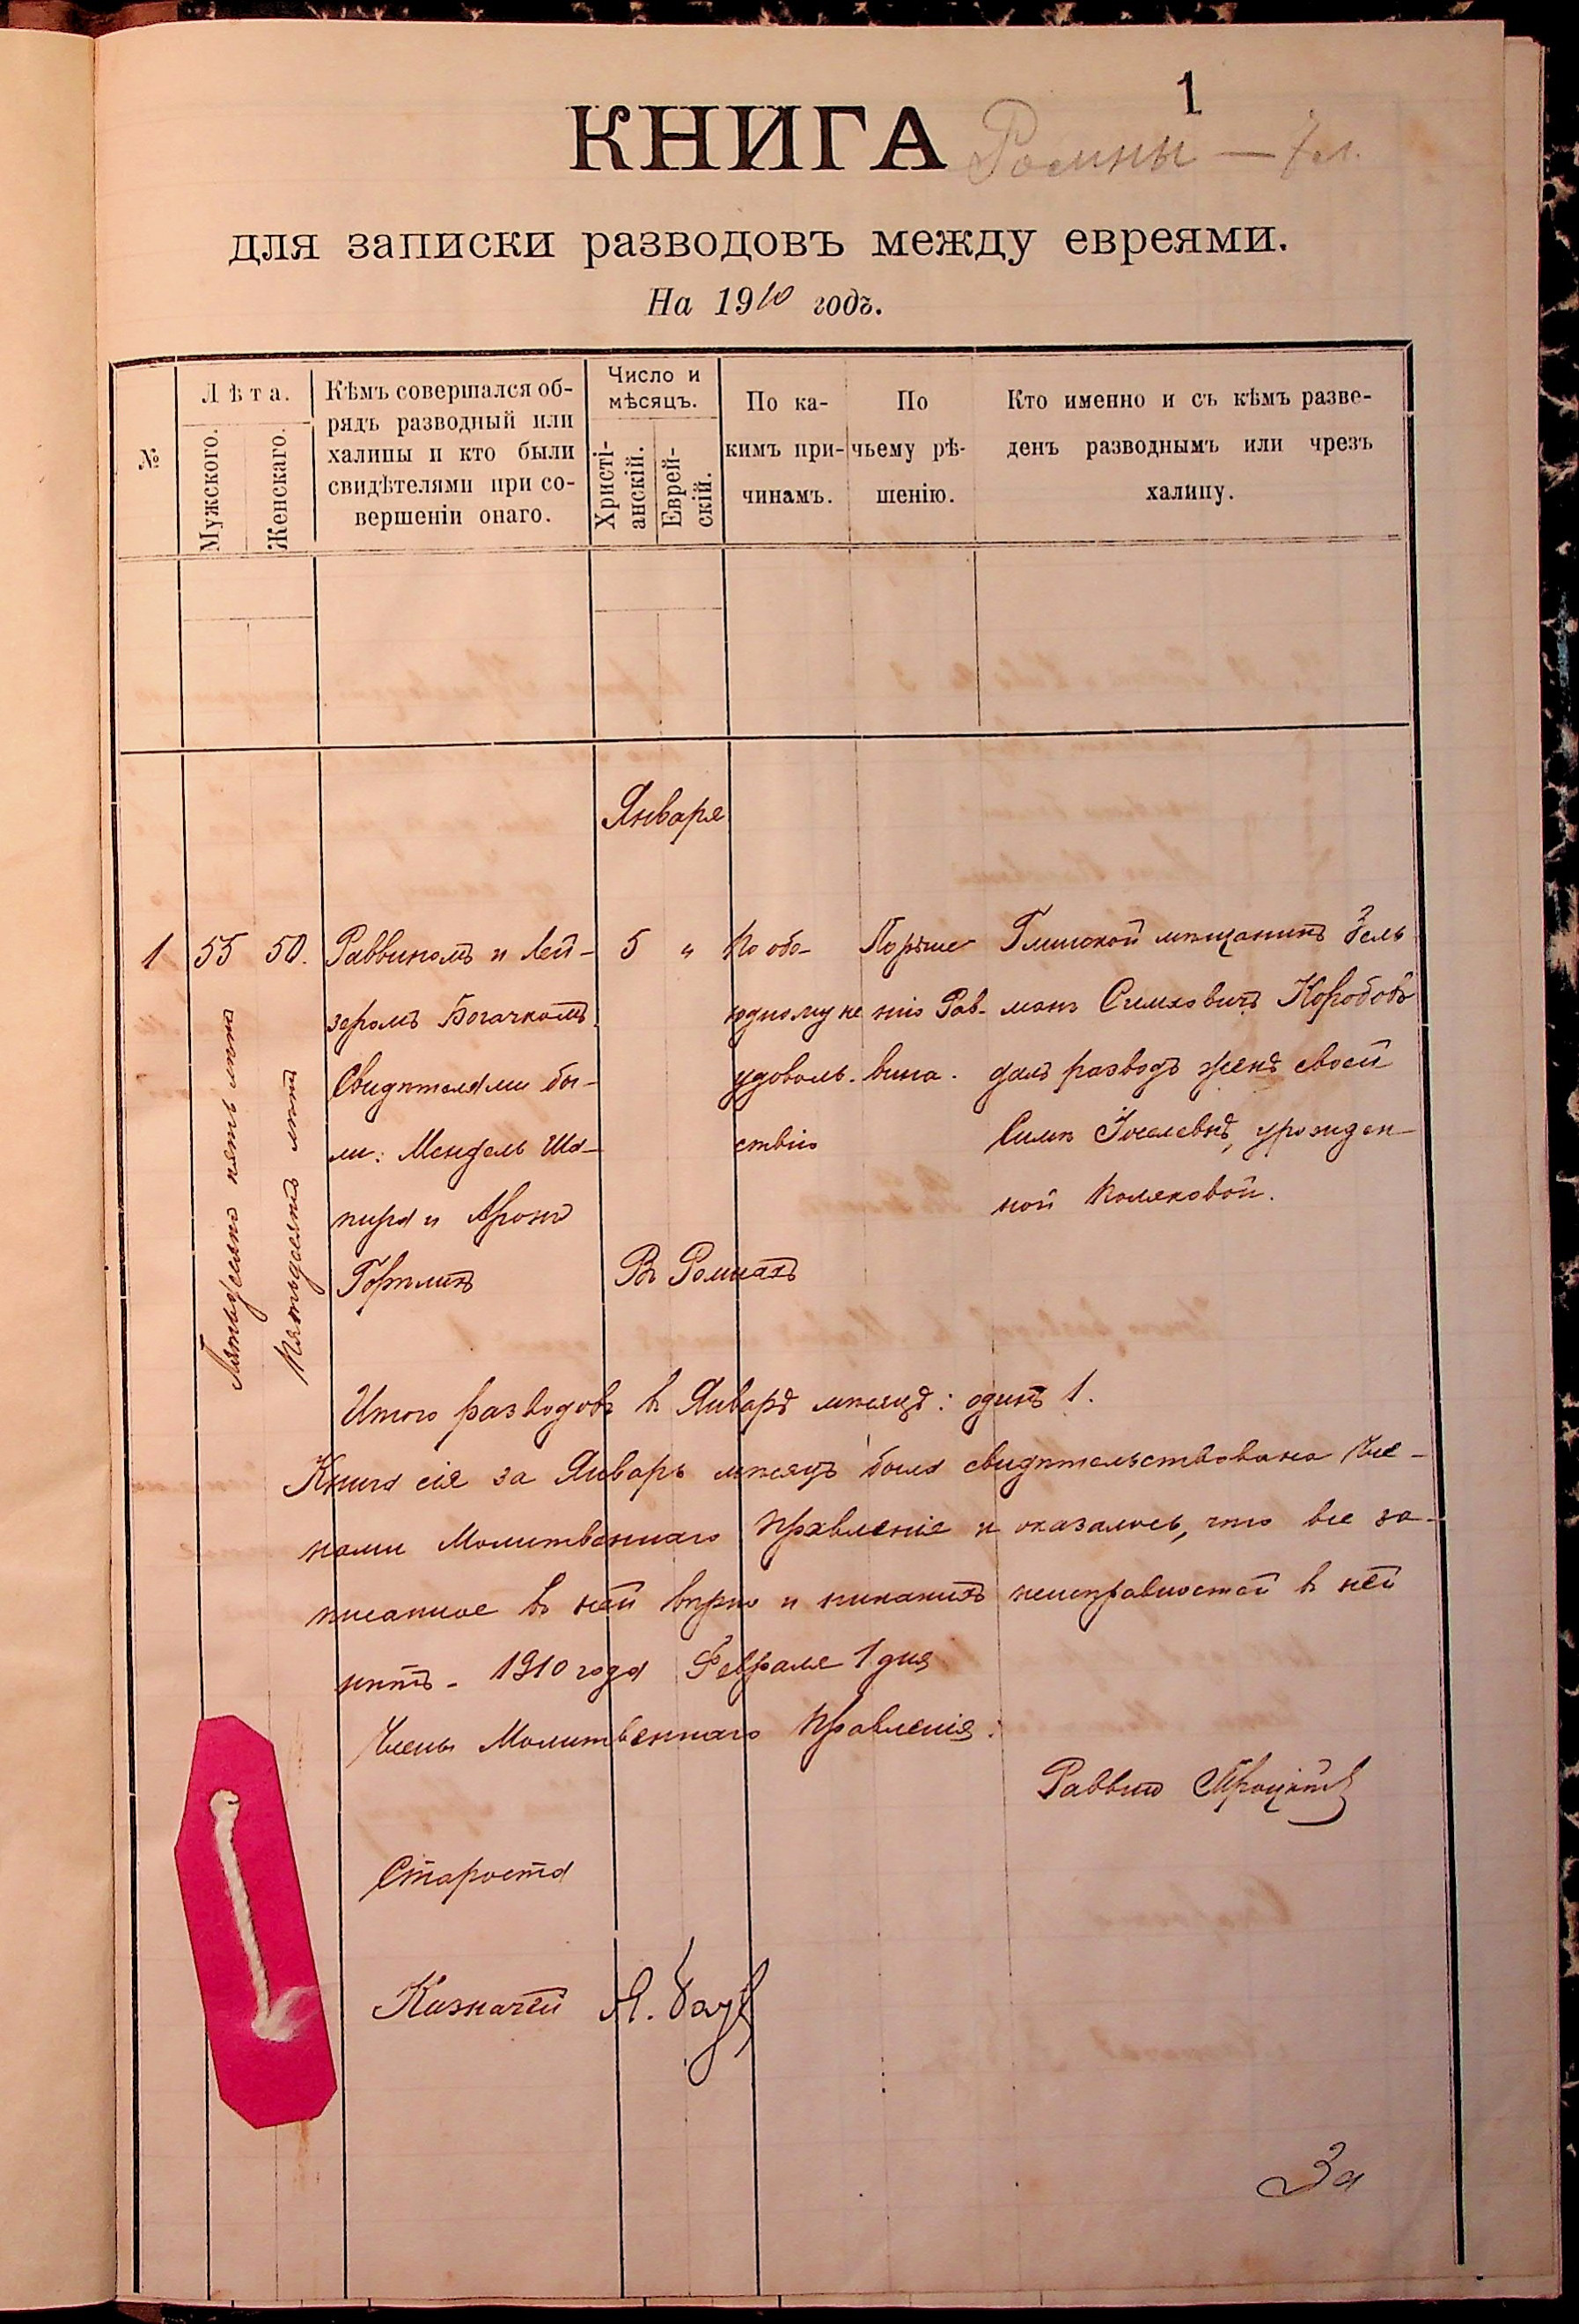 1
КНИГА Ромны — 7 л.
для записки разводовъ между евреями.
На 1910 годъ.
№
Лѣта.
Мужского.
Женскаго.
Кѣмъ совершался об-
рядъ разводный или
халицы и кто были
свидѣтелями при со-
вершеніи онаго.
Число и
мѣсяцъ.
Христі-
анскій.
Еврей-
скій.
По ка-
кимъ при-
чинамъ.
По
чьему рѣ-
шенію.
Кто именно и съ кѣмъ разве-
денъ разводнымъ или чрезъ
халицу.
Января
1
55
Пятьдесятъ пять лѣтъ
50.
Пятьдесятъ лѣтъ
Раввиномъ и Лей-
зеромъ Богачкомъ
Свидѣтелями бы-
ли: Мендель Ша-
пира и Аронъ
Гортликъ
5 "
Въ Ромнахъ
По обо-
юдному не
удоволь-
ствію
По рѣше
нію Рав-
вина.
Глинской мѣщанинъ Зель
манъ Симховичъ Коробовъ
далъ разводъ женѣ своей
Симѣ Іоселевнѣ, урожден-
ной Поляковой.
Итого разводовъ въ Январѣ мѣсяцѣ: одинъ 1.
Книга сія за Январь мѣсяцъ была свидѣтельствована Чле-
нами Молитвеннаго Правленія и оказалось, что все за-
писанное въ ней вѣрно и никакихъ неисправностей въ ней
нѣтъ - 1910 года Февраля 1 дня
Члены Молитвеннаго Правленія:
Раввинъ
Староста
Казначей
За